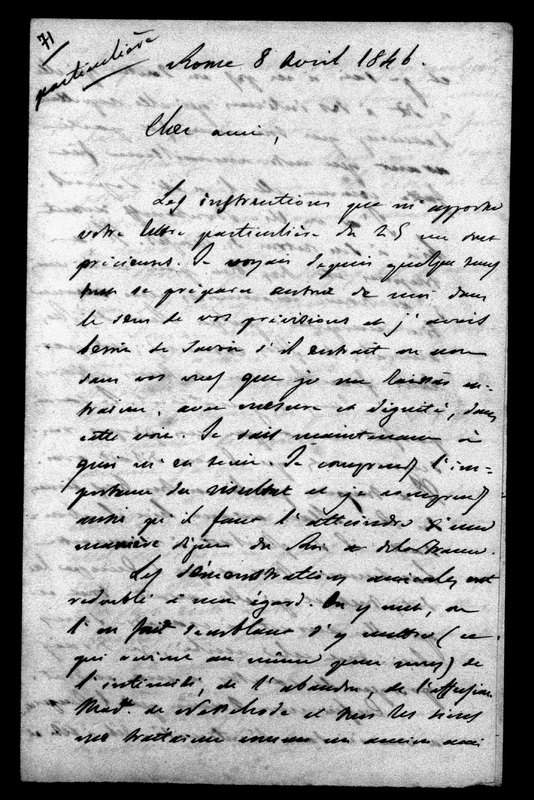 71
particulière
Rome 8 Avril 1846.
Cher ami,
Les instructions que m'apporte
votre lettre particulière du 25 me sont
précieuses. Je voyais depuis quelque tems
tout se préparer autour de moi dans
le sens de vos prévisions et j'avais
besoin de savoir s'il entrait ou non
dans vos vues que je me laissasse en-
traîner, avec mesure et dignité, dans
cette voie. Je sais maintenant à
quoi m'en tenir. Je comprends l'im-
portance du résultat et je comprends
aussi qu'il faut l'atteindre d'une
manière digne du Roi et de la France.
Les démonstrations amicales ont
redoublé à mon égard. On y met, ou
l'on fait semblant d'y mettre (ce
qui revient au même pour nous) de
l'intimité, de l'abandon, de l'affection
Mad. de et tous les siens
me traitaient comme un ancien ami